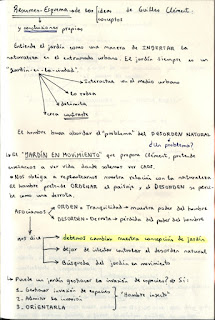 Resumen-Esquema de las ideas de Guilles Clément:
conceptos
y conclusiones propias
Entiende el jardín como una manera de INSERTAR la
naturaleza en el entramado urbano. El jardín siempre es un
"Jardín-en-la-ciudad"
Interactúa en el medio urbano
lo rodea
delimita
crea contraste
El hombre busca abordar el "problema" del DESORDEN NATURAL
¿Un problema?
El "JARDÍN EN MOVIMIENTO" que propone Clément, pretende
enseñarnos a ver vida donde antes caos.
Nos obliga a replantearnos nuestra relación con la naturaleza
El hombre pretende ORDENAR el paisaje y el DESORDEN se perci-
be como una derrota.
ASOCIAMOS
ORDEN = Tranquilidad = muestra poder del hombre
DESORDEN = Derrota = pérdida del poder del hombre
nos dice
debemos cambiar nuestra concepción de jardín
dejar de intentar controlar el desorden natural
Búsqueda del jardín en movimiento
Puede un jardín gestionar la invasión de especies? Sí:
1. Gestionar invasión de especies
2. Admitir la invasión
3. ORIENTARLA
"Hombre